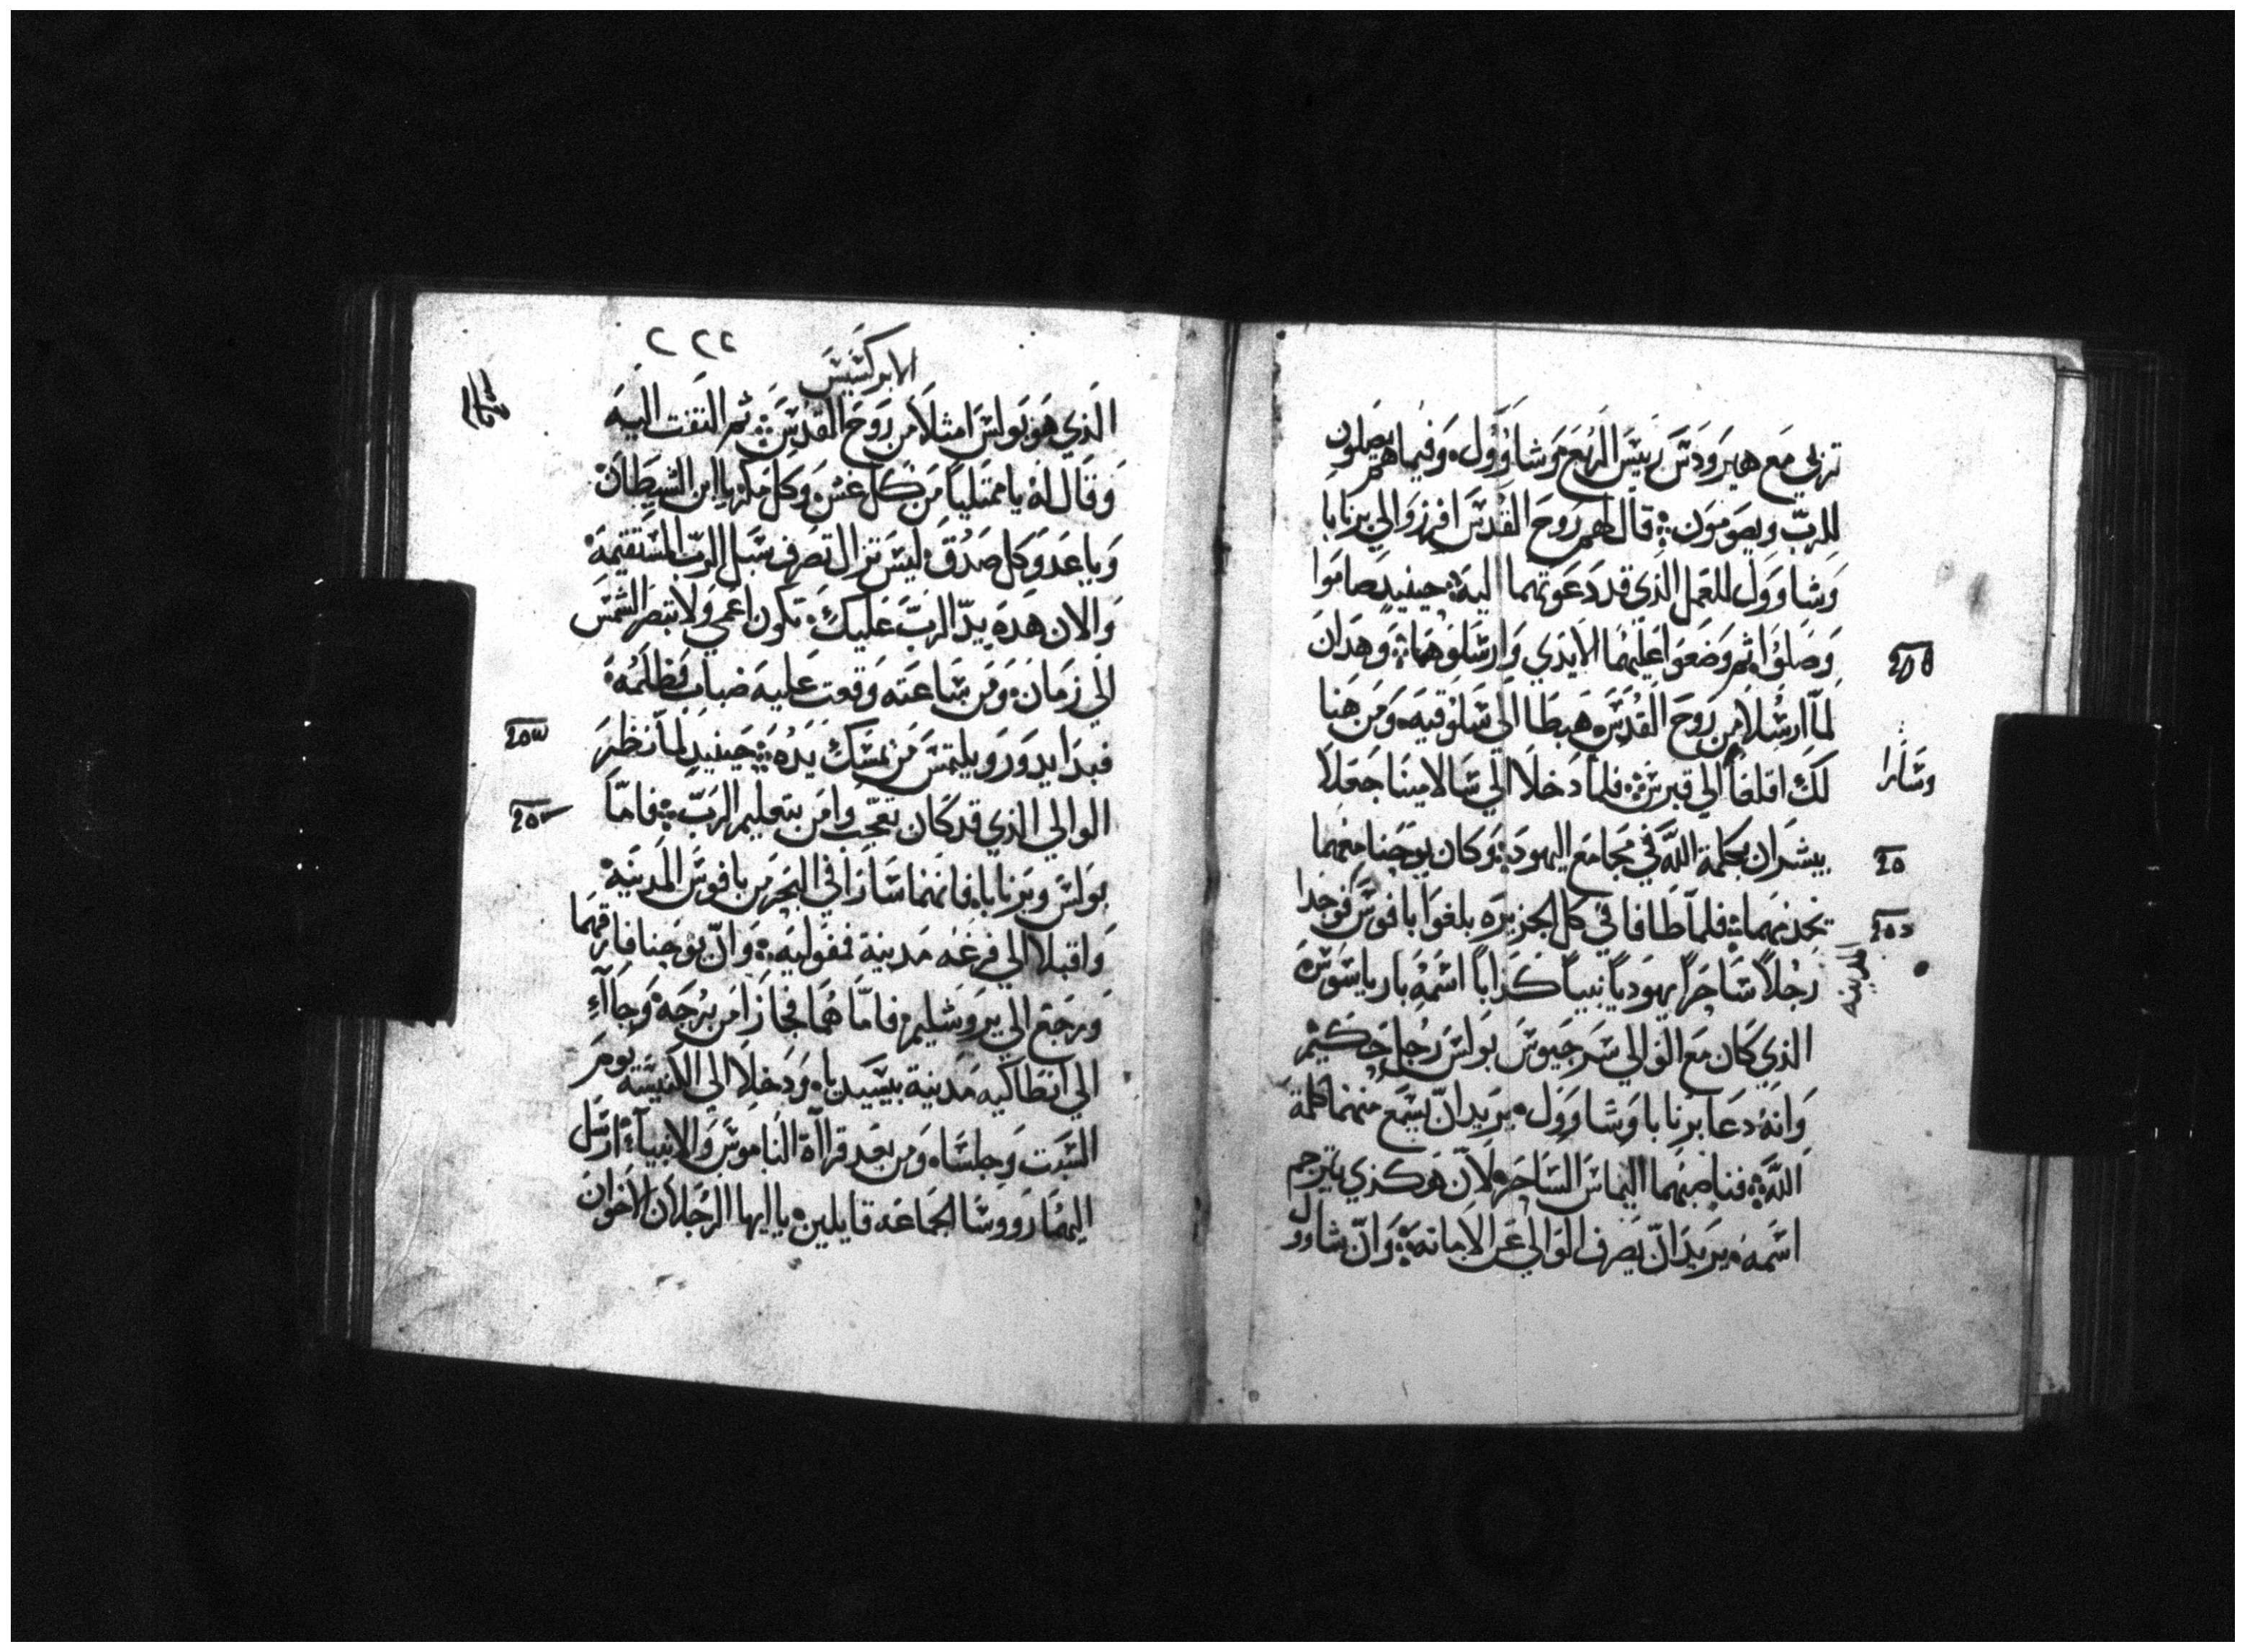 تربي مع هيرودس ريس الربع وشاوول وفيما هم يصلون
للرب ويصومون قال لهم روح القدس افرزوا لي برنابا
وشاوول للعمل الذي قد دعوتهما اليه حينيد صاموا
وصلوا ثم وضعوا عليهما الايدي وارسلوهما وهدان
لما ارسلا من روح القدس هبطا الي سلوقيه ومن هنا
لك اقلعا الي قبرس فلما دخلا الي سالامينا جعلا
وسارا
يبشران بكلمة الله في مجامع اليهود وكان يوحنا معهما
يخدمهما فلما طافا في كل الجزيره بلغوا بافوس فوجدا
المدينه
رجلاً ساحراً يهودياً نبياً كذاباً اسمه بارياسوس
الذي كان مع الوالي سرجيوس بولس رجل حكيم
وانه دعا برنابا وشاوول يريد ان يسمع منهما كلمة
الله فناصبهما اليماس الساحر لان هوكذي يترجم
اسمه يريد ان يصرف الوالي عن الامانة وان شاوول
٢٢٢
الابركسيس
الذي هو بولس امتلا من روح القدس ثم التفت اليه
وقال له يا ممتلياً من كل غش وكل مكر يا ابن الشيطان
ويا عدو كل صدق ليس تزال تصرف سبل الرب المستقيمة
والان هده يد الرب عليك تكون اعمي ولا تبصر الشمس
الي زمان ومن ساعته وقعت عليه ضباب وظلمة
فبدا يدور ويلتمس من يمسك يده حينيد لما نظر
الوالي الذي قد كان تعجب وامن بتعليم الرب فاما
بولس وبرنابا فانهما سارا في البحر من بافوس المدينة
واقبلا الي فرغه مدينة نمفوليه وان يوحنا فارقهما
ورجع الي يروشليم فاما هما فجازا من برجه وجاآء
الي انطاكيه مدينة بيسيديا ودخلا الي الكنيسة يوم
السبت وجلسا ومن بعد قراآة الناموس والانبياء ارسل
اليهما رووسا الجماعه قايلين يا ايها الرجلان الاخوان